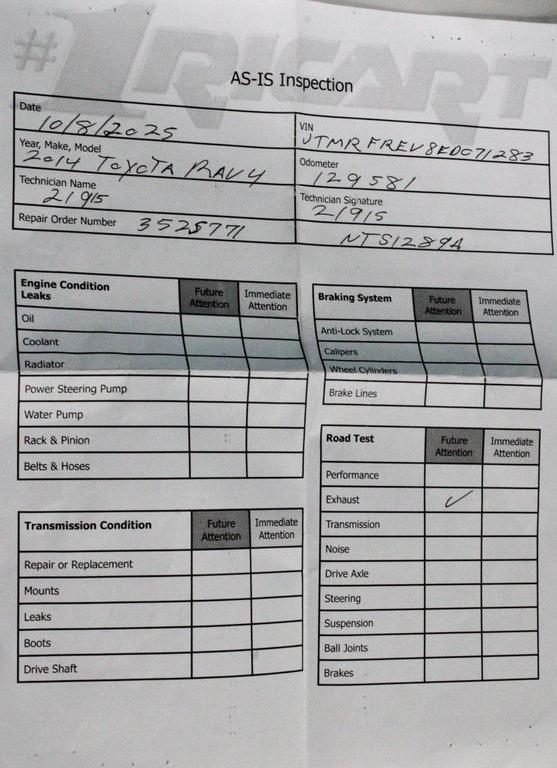 #1 RICART
AS-IS Inspection
Date
10/8/2025
VIN
JTMRFREV8ED071283
Year, Make, Model
2014 TOYOTA RAV4
Odometer
129581
Technician Name
21915
Technician Signature
21915
Repair Order Number 3525771
NTS1289A
Engine Condition Future Immediate
Leaks Attention Attention
Oil
Coolant
Radiator
Power Steering Pump
Water Pump
Rack & Pinion
Belts & Hoses
Transmission Condition Future Immediate
Attention Attention
Repair or Replacement
Mounts
Leaks
Boots
Drive Shaft
Braking System Future Immediate
Attention Attention
Anti-Lock System
Calipers
Wheel Cylinders
Brake Lines
Road Test Future Immediate
Attention Attention
Performance
Exhaust ✓
Transmission
Noise
Drive Axle
Steering
Suspension
Ball Joints
Brakes